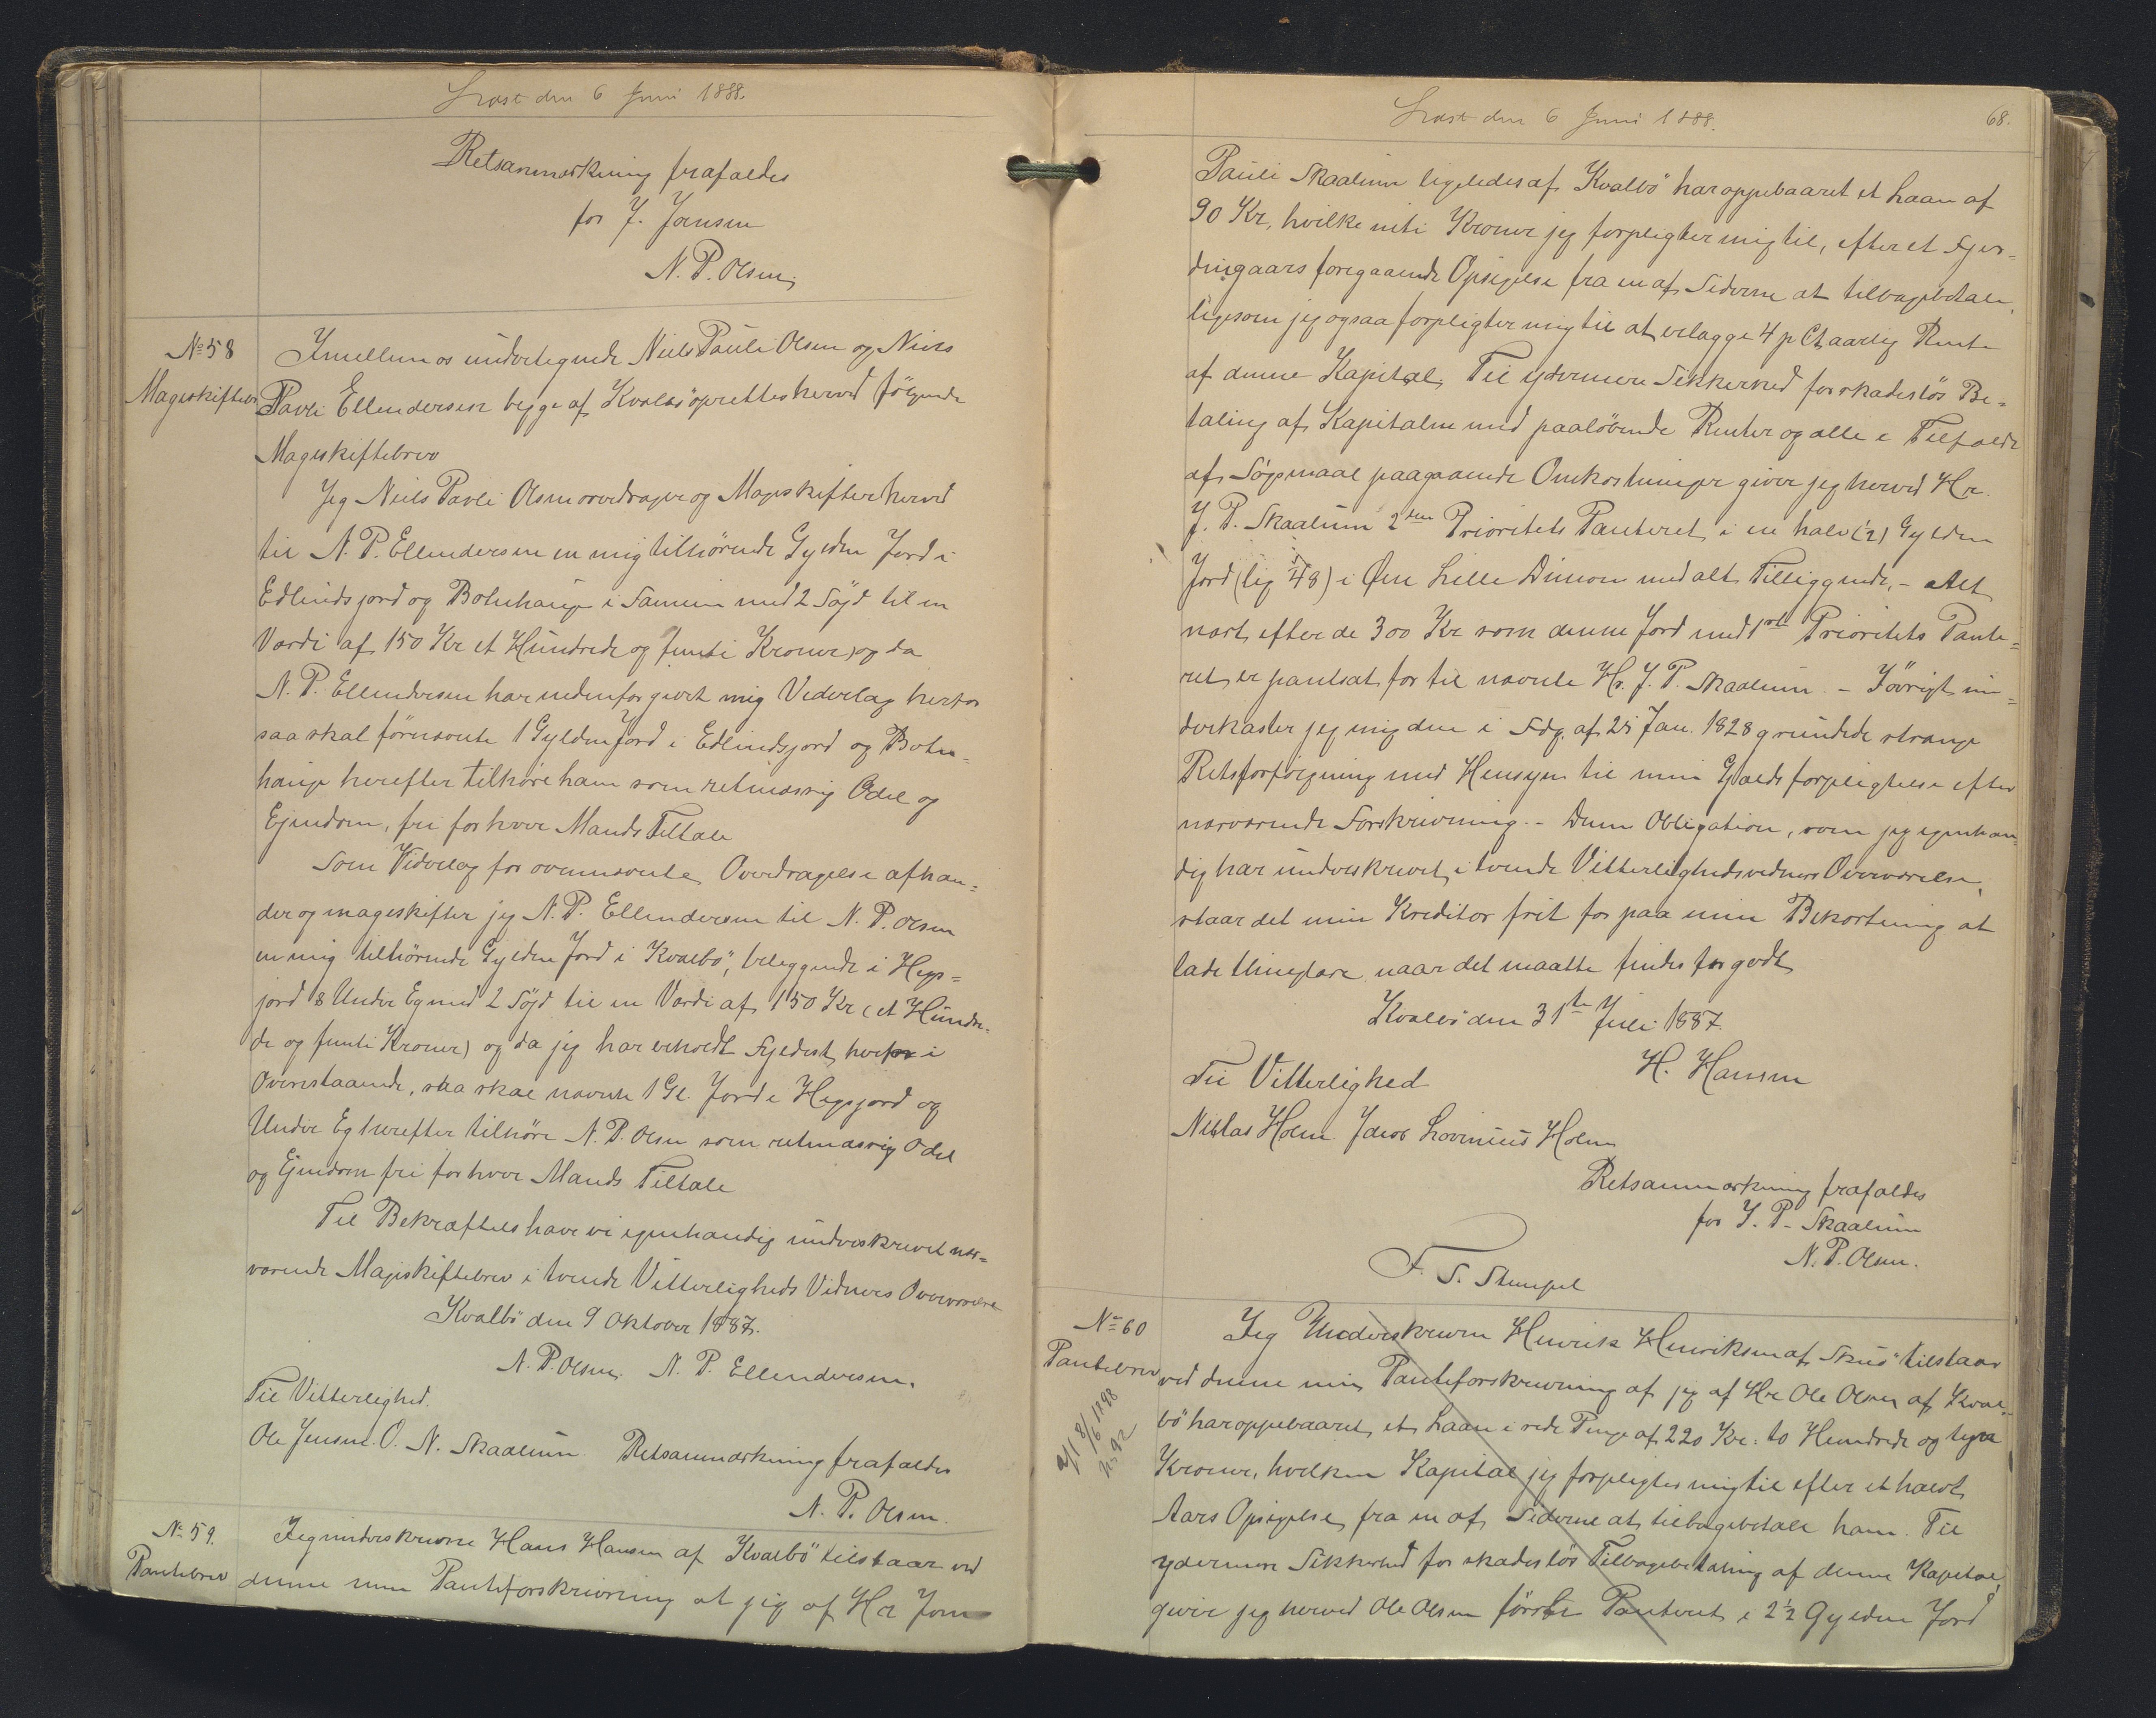 Læst den 6 Juni 1888.
Retsanmærkning frafaldes
for J. Joensen
N. P. Olsen.
No 58
Mageskiftebr
Imellem os undertegnede Niels Pauli Olsen og Niels
Pavli Ellendersen begge af Kvalbö oprettes herved fölgende
Mageskiftebrev
Jeg Niels Pavli Olsen overdrager og Mageskifter herved
til N. P. Ellendersen en mig tilhörende Gylden Jord i
Edlindsjord og Botnhauge i Sameie med 2 Söjd til en
Værdi af 150 Kr et Hundrede og femti Kroner, og da
N. P. Ellendersen har nedenfor givet mig Vederlag herfor
saa skal förnævnte 1 Gylden Jord i Edlindsjord og Botn=
hauge herefter tilhöre ham som retmæssig Odel og
Ejendom, fri for hver Mands Tiltale
Som Vederlag for ovennævnte Overdragelse afhæn=
der og mageskifter jeg N. P. Ellendersen til N. P. Olsen
en mig tilhörende Gylden Jord i Kvalbö, beliggende i Hegs=
jord & Under Eg med 2 Söjd til en Værdi af 150 Kr (et Hundre=
de og femti Kroner) og da jeg har erholdt Fyldest herfor i
Ovenstaaende, saa skal nævnte 1 Gl. Jord i Hegsjord og
Under Eg herefter tilhöre N. P. Olsen som retmæssig Odel
og Ejendom fri for hver Mands Tiltale
Til Bekræftelse have vi egenhændig underskrevet nær=
værende Mageskiftebrev i tvende Vitterligheds Vidners Overværelse
Kvalbö den 9 Oktober 1887.
N. P. Olsen. N. P. Ellendersen.
Til Vitterlighed.
Ole Jensen. O. N. Skaalum. Retsanmærkning frafaldes
N. P. Olsen.
No 59.
Pantebrev
Jeg underskrevne Hans Hansen af Kvalbö tilstaar ved
denne min Panteforskrivning at jeg af Hr Joen
Læst den 6 Juni 1888.
68.
Pauli Skaalum ligeledes af Kvalbö har oppebaaret et Laan af
90 Kr, hvilke niti Kroner jeg forpligter mig til, efter et Fjer=
dingaars foregaaende Opsigelse fra en af Siderne at tilbagebetale,
ligesom jeg ogsaa forpligter mig til at erlægge 4 p Ct aarlig Rente
af denne Kapital. Til ydermere Sikkerhed for skadeslös Be=
taling af Kapitalen med paalöbende Renter og alle i Tilfælde
af Sögsmaal paagaaende Omkostninger giver jeg herved Hr.
J. P. Skaalum 2den Prioritets Panteret i en halv (½) Gylden
Jord (lig 1/48) i Øen Lille Dimon med alt Tilliggende, - Alt
næst efter de 300 Kr som denne Jord med 1ste Prioritets Pante=
ret er pantsat for til nævnte Hr. J. P. Skaalum. - Iövrigt un=
derkaster jeg mig den i Fdg. af 25 Jan. 1828 grundede strænge
Retsforfölgning med Hensyn til min Gjældsforpligtelse efter
nærværende Forskrivning. - Denne Obligation, som jeg egenhæn
dig har underskrevet i tvende Vitterlighedsvidners Overværelse,
staar det min Kreditor frit for paa min Bekostning at
lade thinglæse naar det maatte findes for godt
Kvalbö den 31te Juli 1887.
H. Hansen
Til Vitterlighed
Niklas Holm Jacob Lovinius Holm
Retsanmærkning frafaldes
for J. P. Skaalum
N. P. Olsen.
F. S. Stempel
No 60
Pantebrev
Jeg Underskrevne Henrik Henriksen af Skuö tilstaar
ved denne min Panteforskrivning at jeg af Hr Ole Olsen af Kval=
bö har oppebaaret et Laan i rede Penge af 220 Kr: to Hundrede og tyve
Kroner, hvilken Kapital jeg forpligter mig til efter et halvt
Aars Opsigelse fra en af Siderne at tilbagebetale ham. Til
ydermere Sikkerhed for skadeslös Tilbagebetaling af denne Kapital,
giver jeg herved Ole Olsen förste Panteret i 2½ Gylden Jord